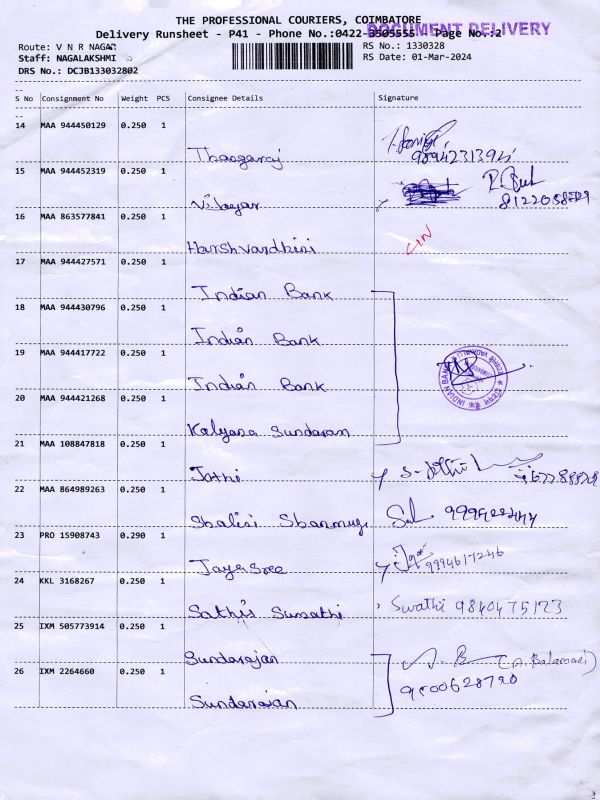 THE PROFESSIONAL COURIERS, COIMBATORE
DOCUMENT DELIVERY
Delivery Runsheet - P41 - Phone No.:0422-3505555 Page No.:2
Route: V N R NAGAR
RS No.: 1330328
Staff: NAGALAKSHMI
RS Date: 01-Mar-2024
DRS No.: DCJB133032802
--
S No Consignment No Weight PCS Consignee Details Signature
--
14 MAA 944450129 0.250 1
Thangaraj
15 MAA 944452319 0.250 1
Vilayar
16 MAA 863577841 0.250 1
Harsh vardhini
CIN
17 MAA 944427571 0.250 1
Indian Bank
18 MAA 944430796 0.250 1
Indian Bank
19 MAA 944417722 0.250 1
Indian Bank
INDIAN BANK
20 MAA 944421268 0.250 1
Kalyana Sundaran
21 MAA 108847818 0.250 1
Jothi
22 MAA 864989263 0.250 1
Shalini Shanmuga
23 PRO 15908743 0.290 1
Jayasree
9994617246
24 KKL 3168267 0.250 1
Sathis Sumathi
Swathi 9840475123
25 IXM 505773914 0.250 1
Sundarajan
26 IXM 2264660 0.250 1
9500628720
Sundarajan